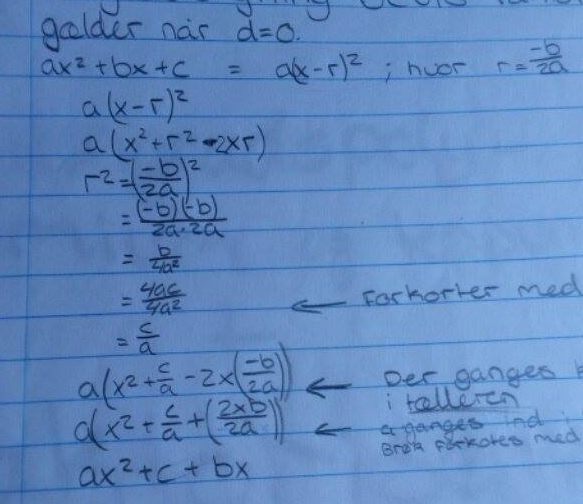 gælder når d=0.
ax²+bx+c = a(x-r)² ; hvor r=\frac{-b}{2a}
a(x-r)²
a(x²+r²-2xr)
r²=(\frac{-b}{2a})²
=\frac{(-b)(-b)}{2a·2a}
=\frac{b}{4a²}
=\frac{4ac}{4a²} ← Forkorter med
=\frac{c}{a}
a(x²+\frac{c}{a}-2x(\frac{-b}{2a})) ← Der ganges
i tælleren
a(x²+\frac{c}{a}+(\frac{2xb}{2a})) ← a ganges ind i
Brøk forkortes med
ax²+c+bx